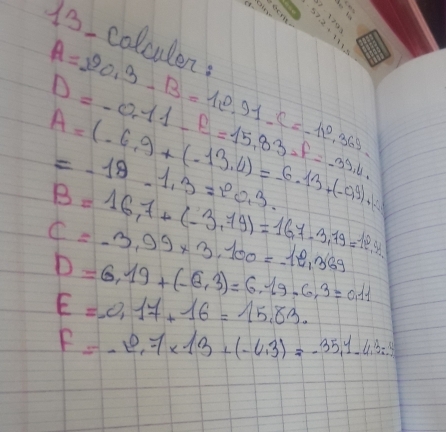 13- Calculer :
A = 20,3 - B = 12,91 - C = -12,369 -
D = -0,11 - E = 15,83 - F = -39,4.
A = (-6,9) + (-13,4) = -6-13+(-0,9)+
= -19 -1,3 = 20,3.
B = 16,7 + (-3,79) = 16,7-3,79 = 12,91
C = -3,99 × 3,100 = -12,369
D = 6,19 + (-6,3) = 6,19-6,3 = 0,11
E = -0,17 + 16 = 15,83.
F = -2,7 × 13 + (-4,3) = -35,1-4,3 =